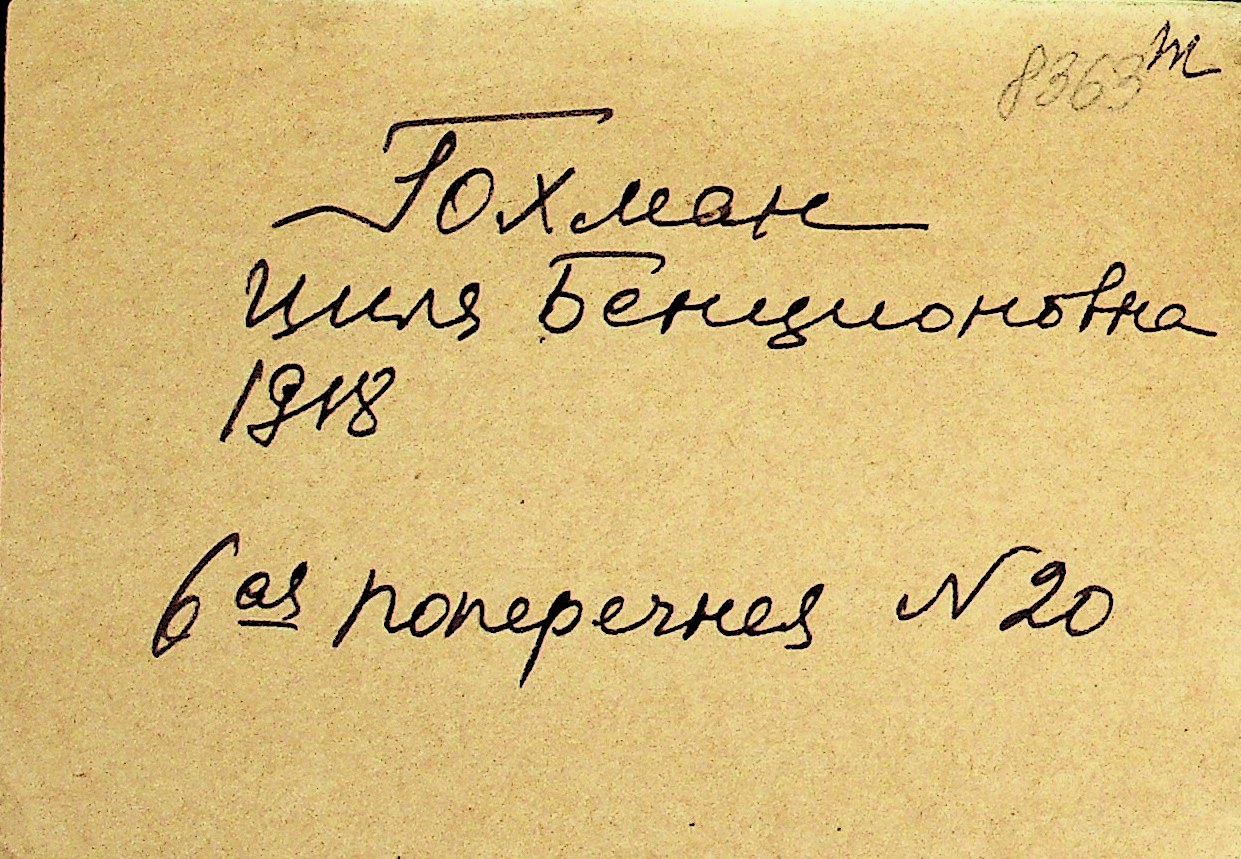 8363 т
Гохман
Циля Бенционовна
1918
6ая поперечная N 20